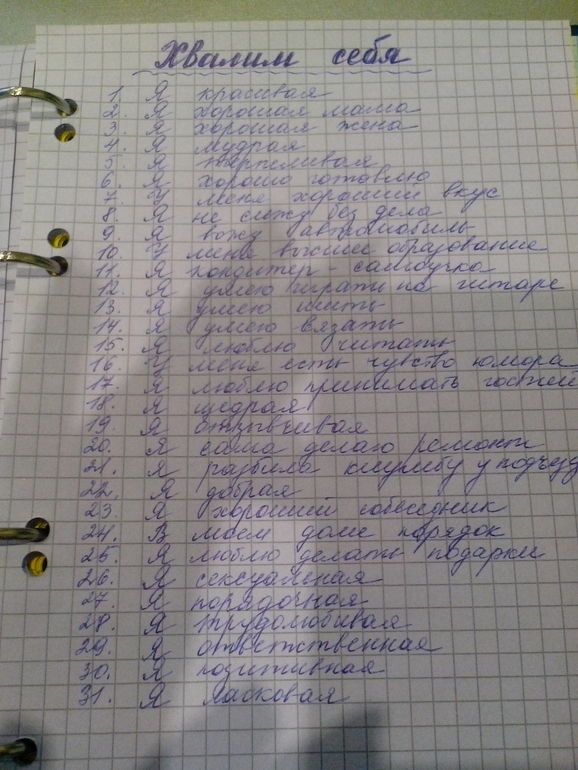 Хвалим себя
1. Я красивая
2. Я хорошая мама
3. Я хорошая жена
4. Я мудрая
5. Я терпеливая
6. Я хорошо готовлю
7. У меня хороший вкус
8. Я не сижу без дела
9. Я вожу автомобиль
10. У меня высшее образование
11. Я кондитер - самоучка
12. Я умею играть на гитаре
13. Я умею шить
14. Я умею вязать
15. Я люблю читать
16. У меня есть чувство юмора
17. Я люблю принимать гостей
18. Я щедрая
19. Я отзывчивая
20. Я сама делаю ремонт
21. Я разбила клумбу у подъезд
22. Я добрая
23. Я хороший собеседник
24. В моем доме порядок
25. Я люблю делать подарки
26. Я сексуальная
27. Я порядочная
28. Я трудолюбивая
29. Я ответственная
30. Я позитивная
31. Я ласковая